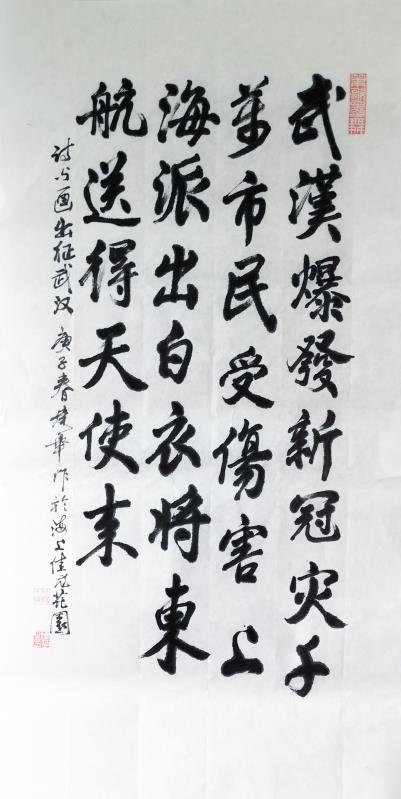 武漢爆發新冠灾千
萬市民受傷害上
海派出白衣將東
航送得天使来
诗与画出征武汉 庚子春晓華作於海上佳花園